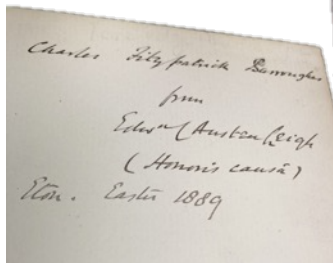 Charles Fitzpatrick Burroughes
from
Edwd Austen Leigh
(Honoris causâ)
Eton. Easter 1889